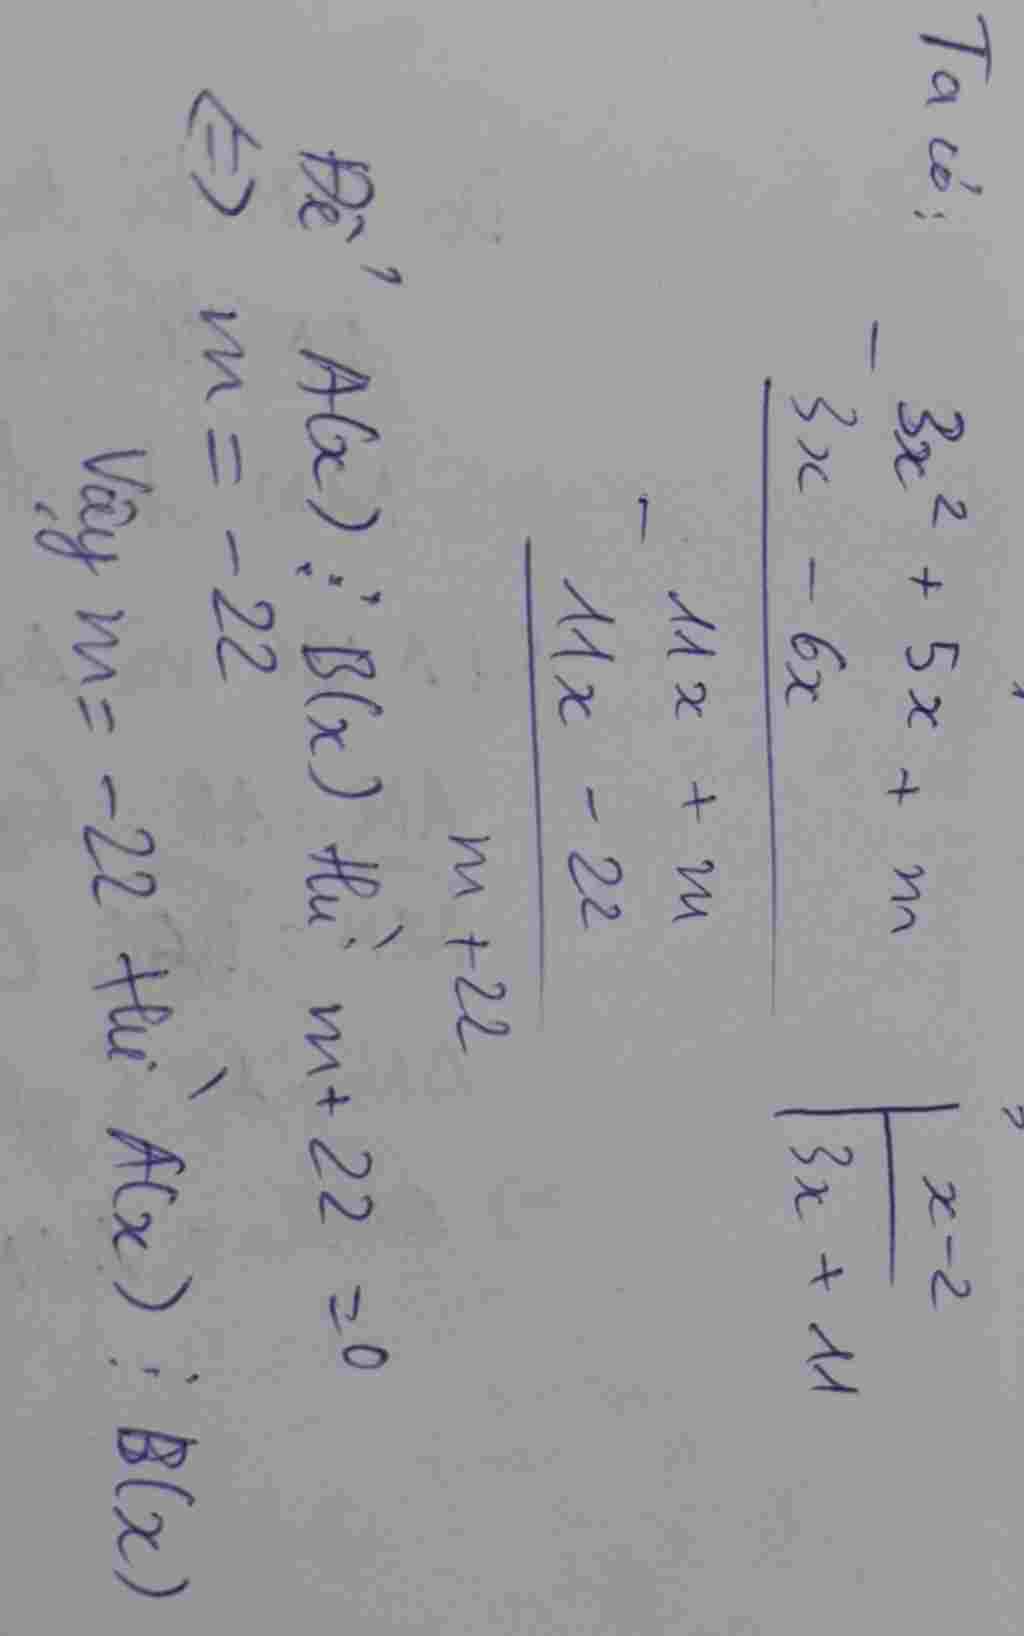 Ta có:
3x² + 5x + m | x - 2
- 3x - 6x | 3x + 11
11x + m
- 11x - 22
m + 22
Để A(x) ⋮ B(x) thì m + 22 = 0
<=> m = -22
Vậy m = -22 thì A(x) ⋮ B(x)